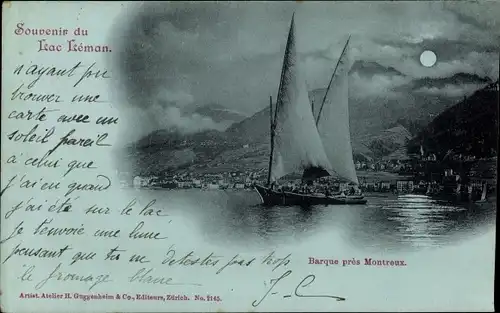 Souvenir du
Lac Léman.
n'ayant pu
trouver une
carte avec un
soleil pareil
à celui que
j'ai eu quand
j'ai été sur le lac
je t'envoie une lune
pensant que tu ne detestes pas trop
le fromage blanc
J-C
Barque près Montreux.
Artist. Atelier H. Guggenheim & Co., Editeurs, Zürich. No. 2145.